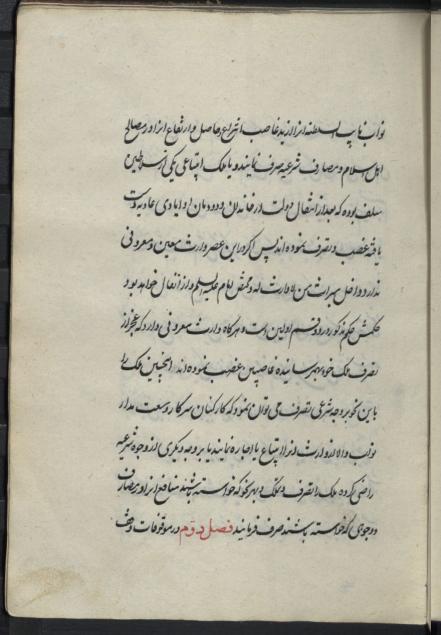 نواب نایب السلطنه انرا از ید غاصب انتزاع و حاصل و ارتفاع انرا در مصالح
اهل اسلام و مصارف شرعیه صرف نمایند و یا ملک ابتیاعی یکی از سلاطین
سلف بوده که بعد از انتقال دولت از خاندان و دودمان او ایادی عادیه دست
یافته غصب و تصرف نموده اند پس اگر در این عصر وارث معین و معروفی
ندارد داخل میراث من لا وارث له و مختص امام علیه السلم و از انفال خواهد بود
حکمش حکم مذکور در دو قسم اولین است و هرگاه وارث معروفی دارد که عجز از
تصرف ملک خود بهم رسانیده غاصبین غصب نموده اند اینچنین ملک را
باین نحو بر وجه شرعی تصرف می توان نمود که کارکنان سرکار وسعت مدار
نواب والا از وارث انرا ابتیاع یا اجاره نمایند یا بر وجه دیگری از وجوه شرعیه
راضی کرده ملک را تصرف و بهر نحو که خواسته باشند منافع انرا در مصارف
و وجوهی که خواسته باشند صرف فرمایند فصل دوم در موقوفات وقف